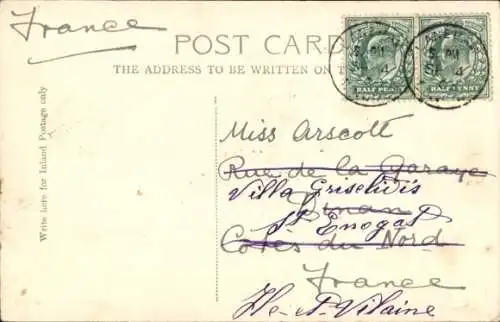 France
POST CARD
THE ADDRESS TO BE WRITTEN ON
HALF PENNY
HALF PENNY
Write here for Inland Postage only
Miss Arscott
Rue de la Garaye
Villa Griselidis
Dinan
St Enogat
Côtes du Nord
France
Ile-et-Vilaine